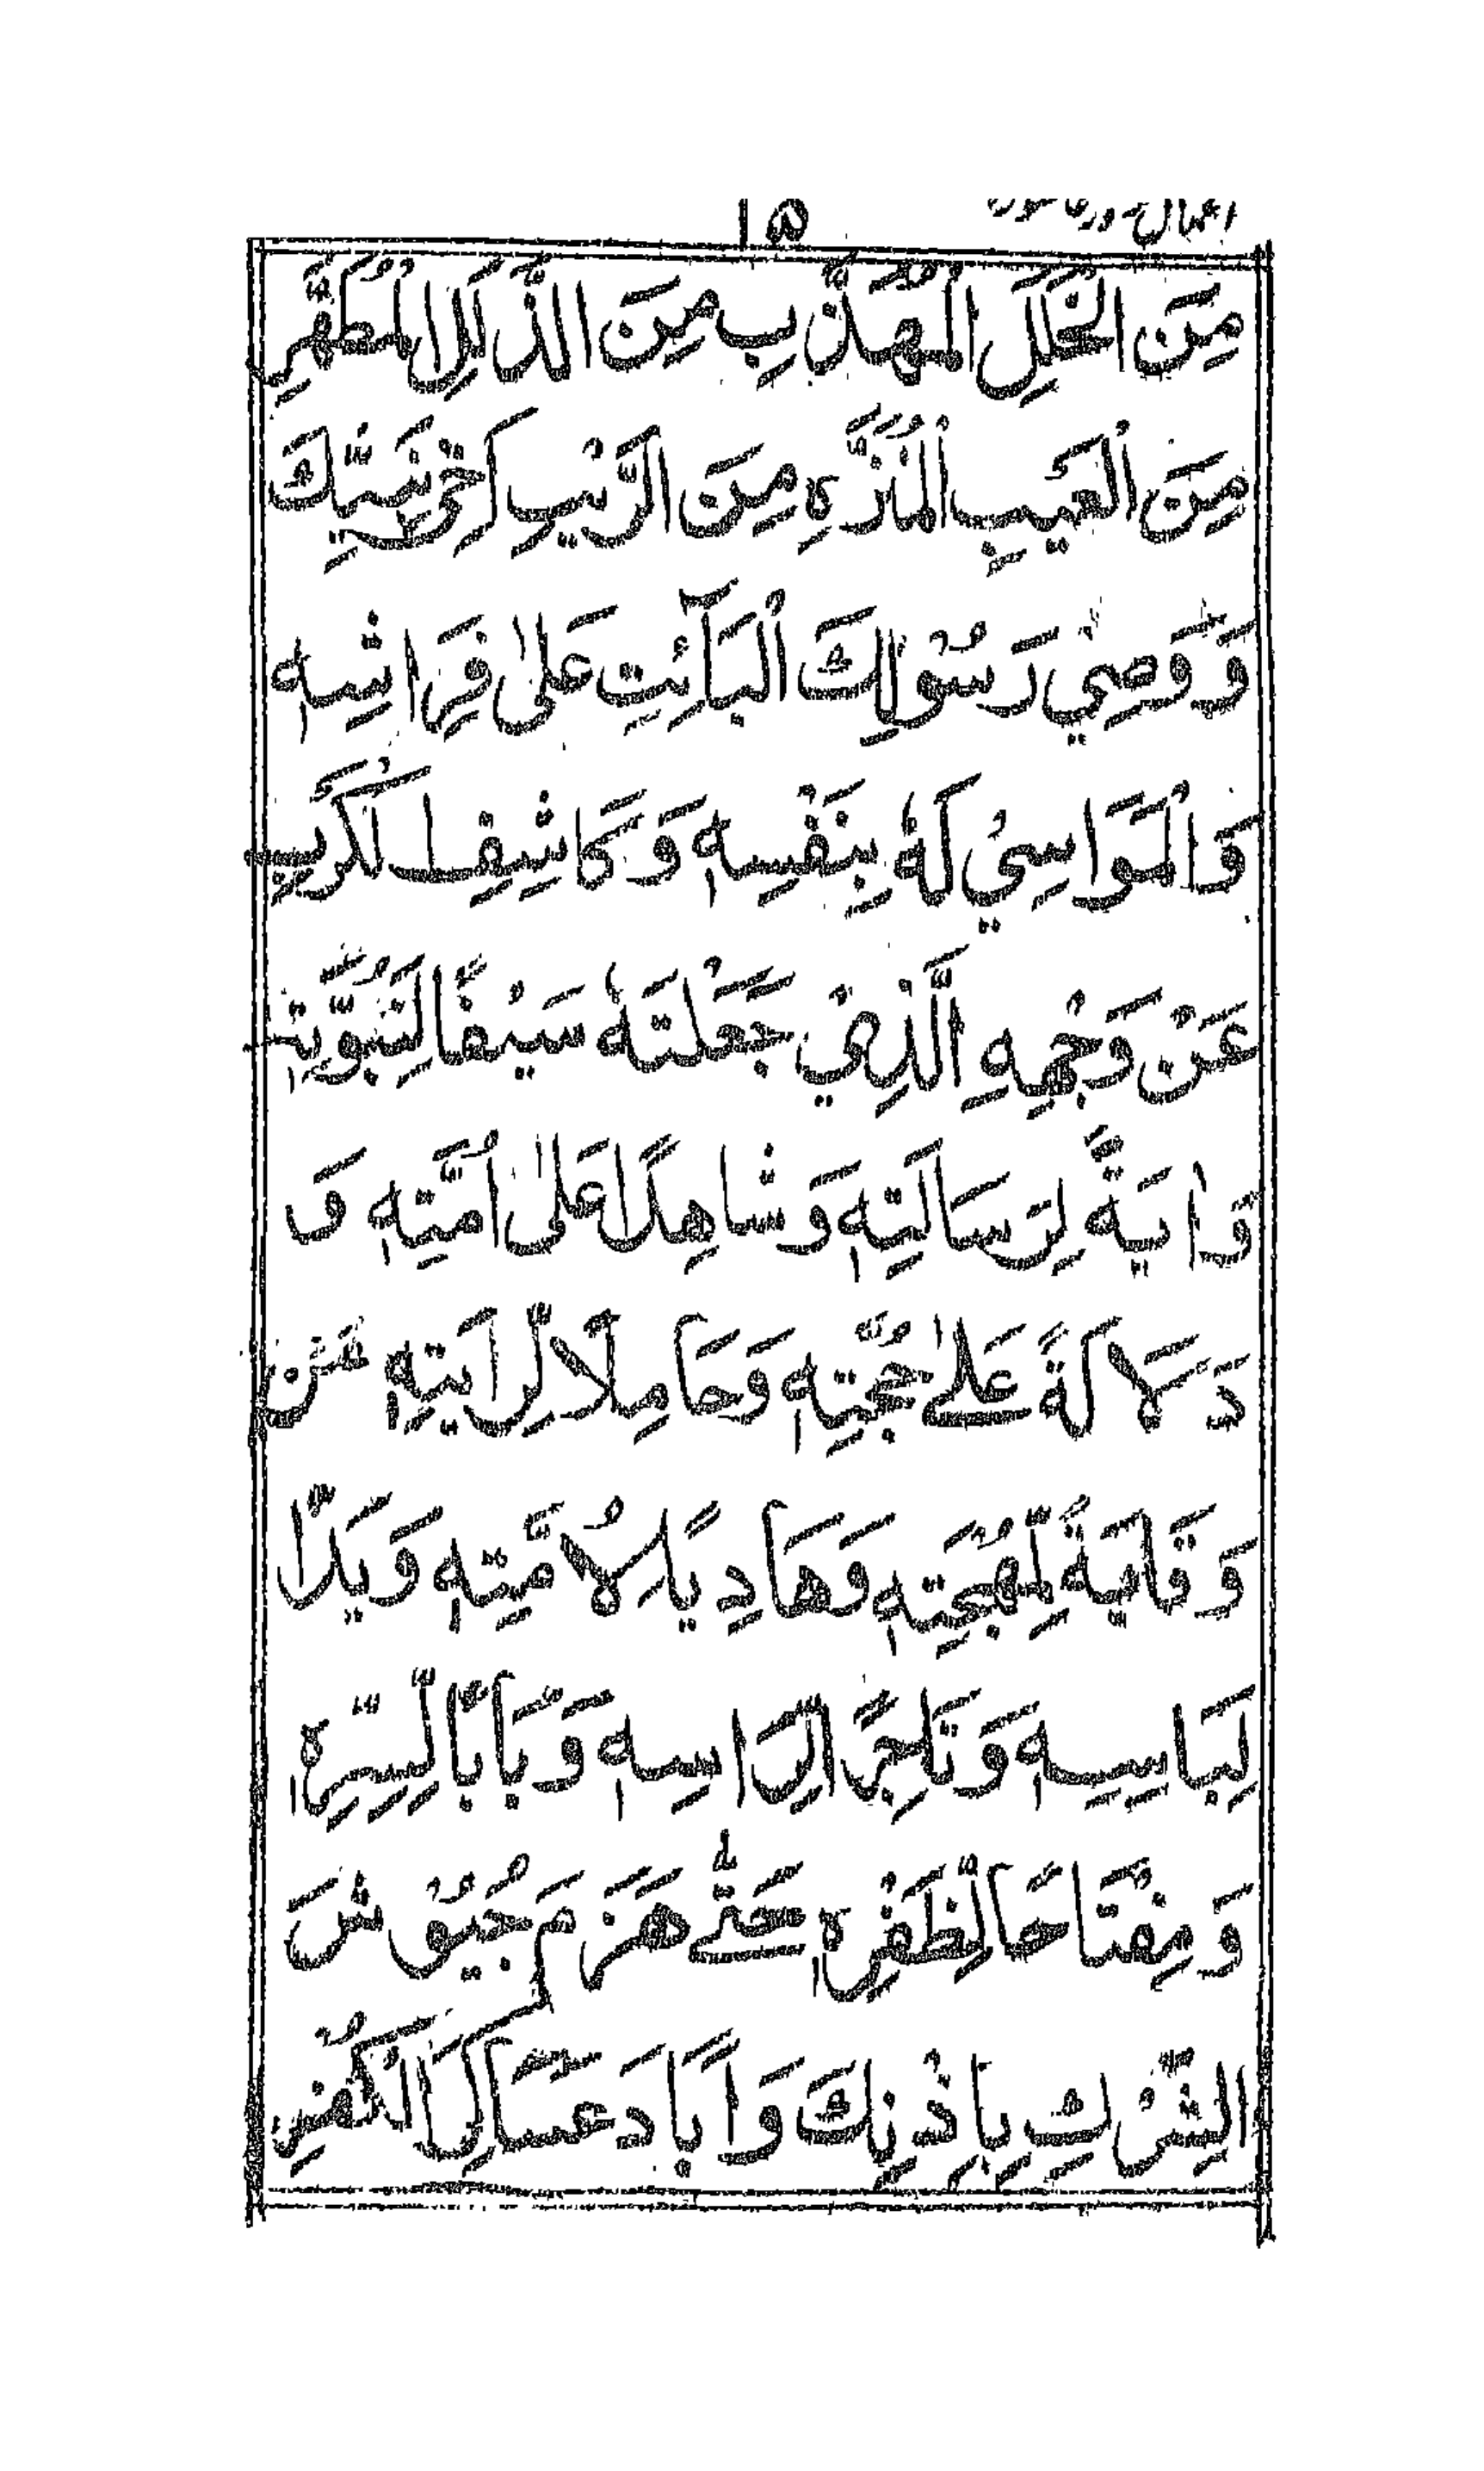 اعمال روز عاشورہ ١٥
مِنَ الْخَلَلِ الْمُهَذَّبِ مِنَ الذَّلَلِ الْمُطَهَّرِ
مِنَ الْعَيْبِ الْمُنَزَّهِ مِنَ الرَّيْبِ اَخِيْ نَبِيِّكَ
وَ وَصِيِّ رَسُوْلِكَ الْبَآئِتِ عَلٰى فِرَاشِهٖ
وَالْمَوَاسِيْ لَهٗ بِنَفْسِهٖ وَ كَاشِفِ الْكُرَبِ
عَنْ وَجْهِهِ الَّذِيْ جَعَلْتَهٗ سَيْفًا لِنُبُوَّتِهٖ
وَ اٰيَةً لِرِسَالَتِهٖ وَ شَاهِدًا عَلٰى اُمَّتِهٖ وَ
دَلَالَةً عَلٰے حُجَّتِهٖ وَ حَامِلًا لِّرَايَتِهٖ
وَ قَايَةً لِّمُهْجَتِهٖ وَ هَادِيًا لِاُمَّتِهٖ وَ يَدًا
لِبَاسِهٖ وَ تَاجًا لِرَاسِهٖ وَ بَابًا لِّسِرِّهٖ
وَ مِفْتَاحًا لِّظَفَرِهٖ حَتّٰے هَزَمَ جُيُوْشَ
الشِّرْكِ بِاِذْنِكَ وَ اَبَادَ عَسَاكِرَ الْكُفْرِ